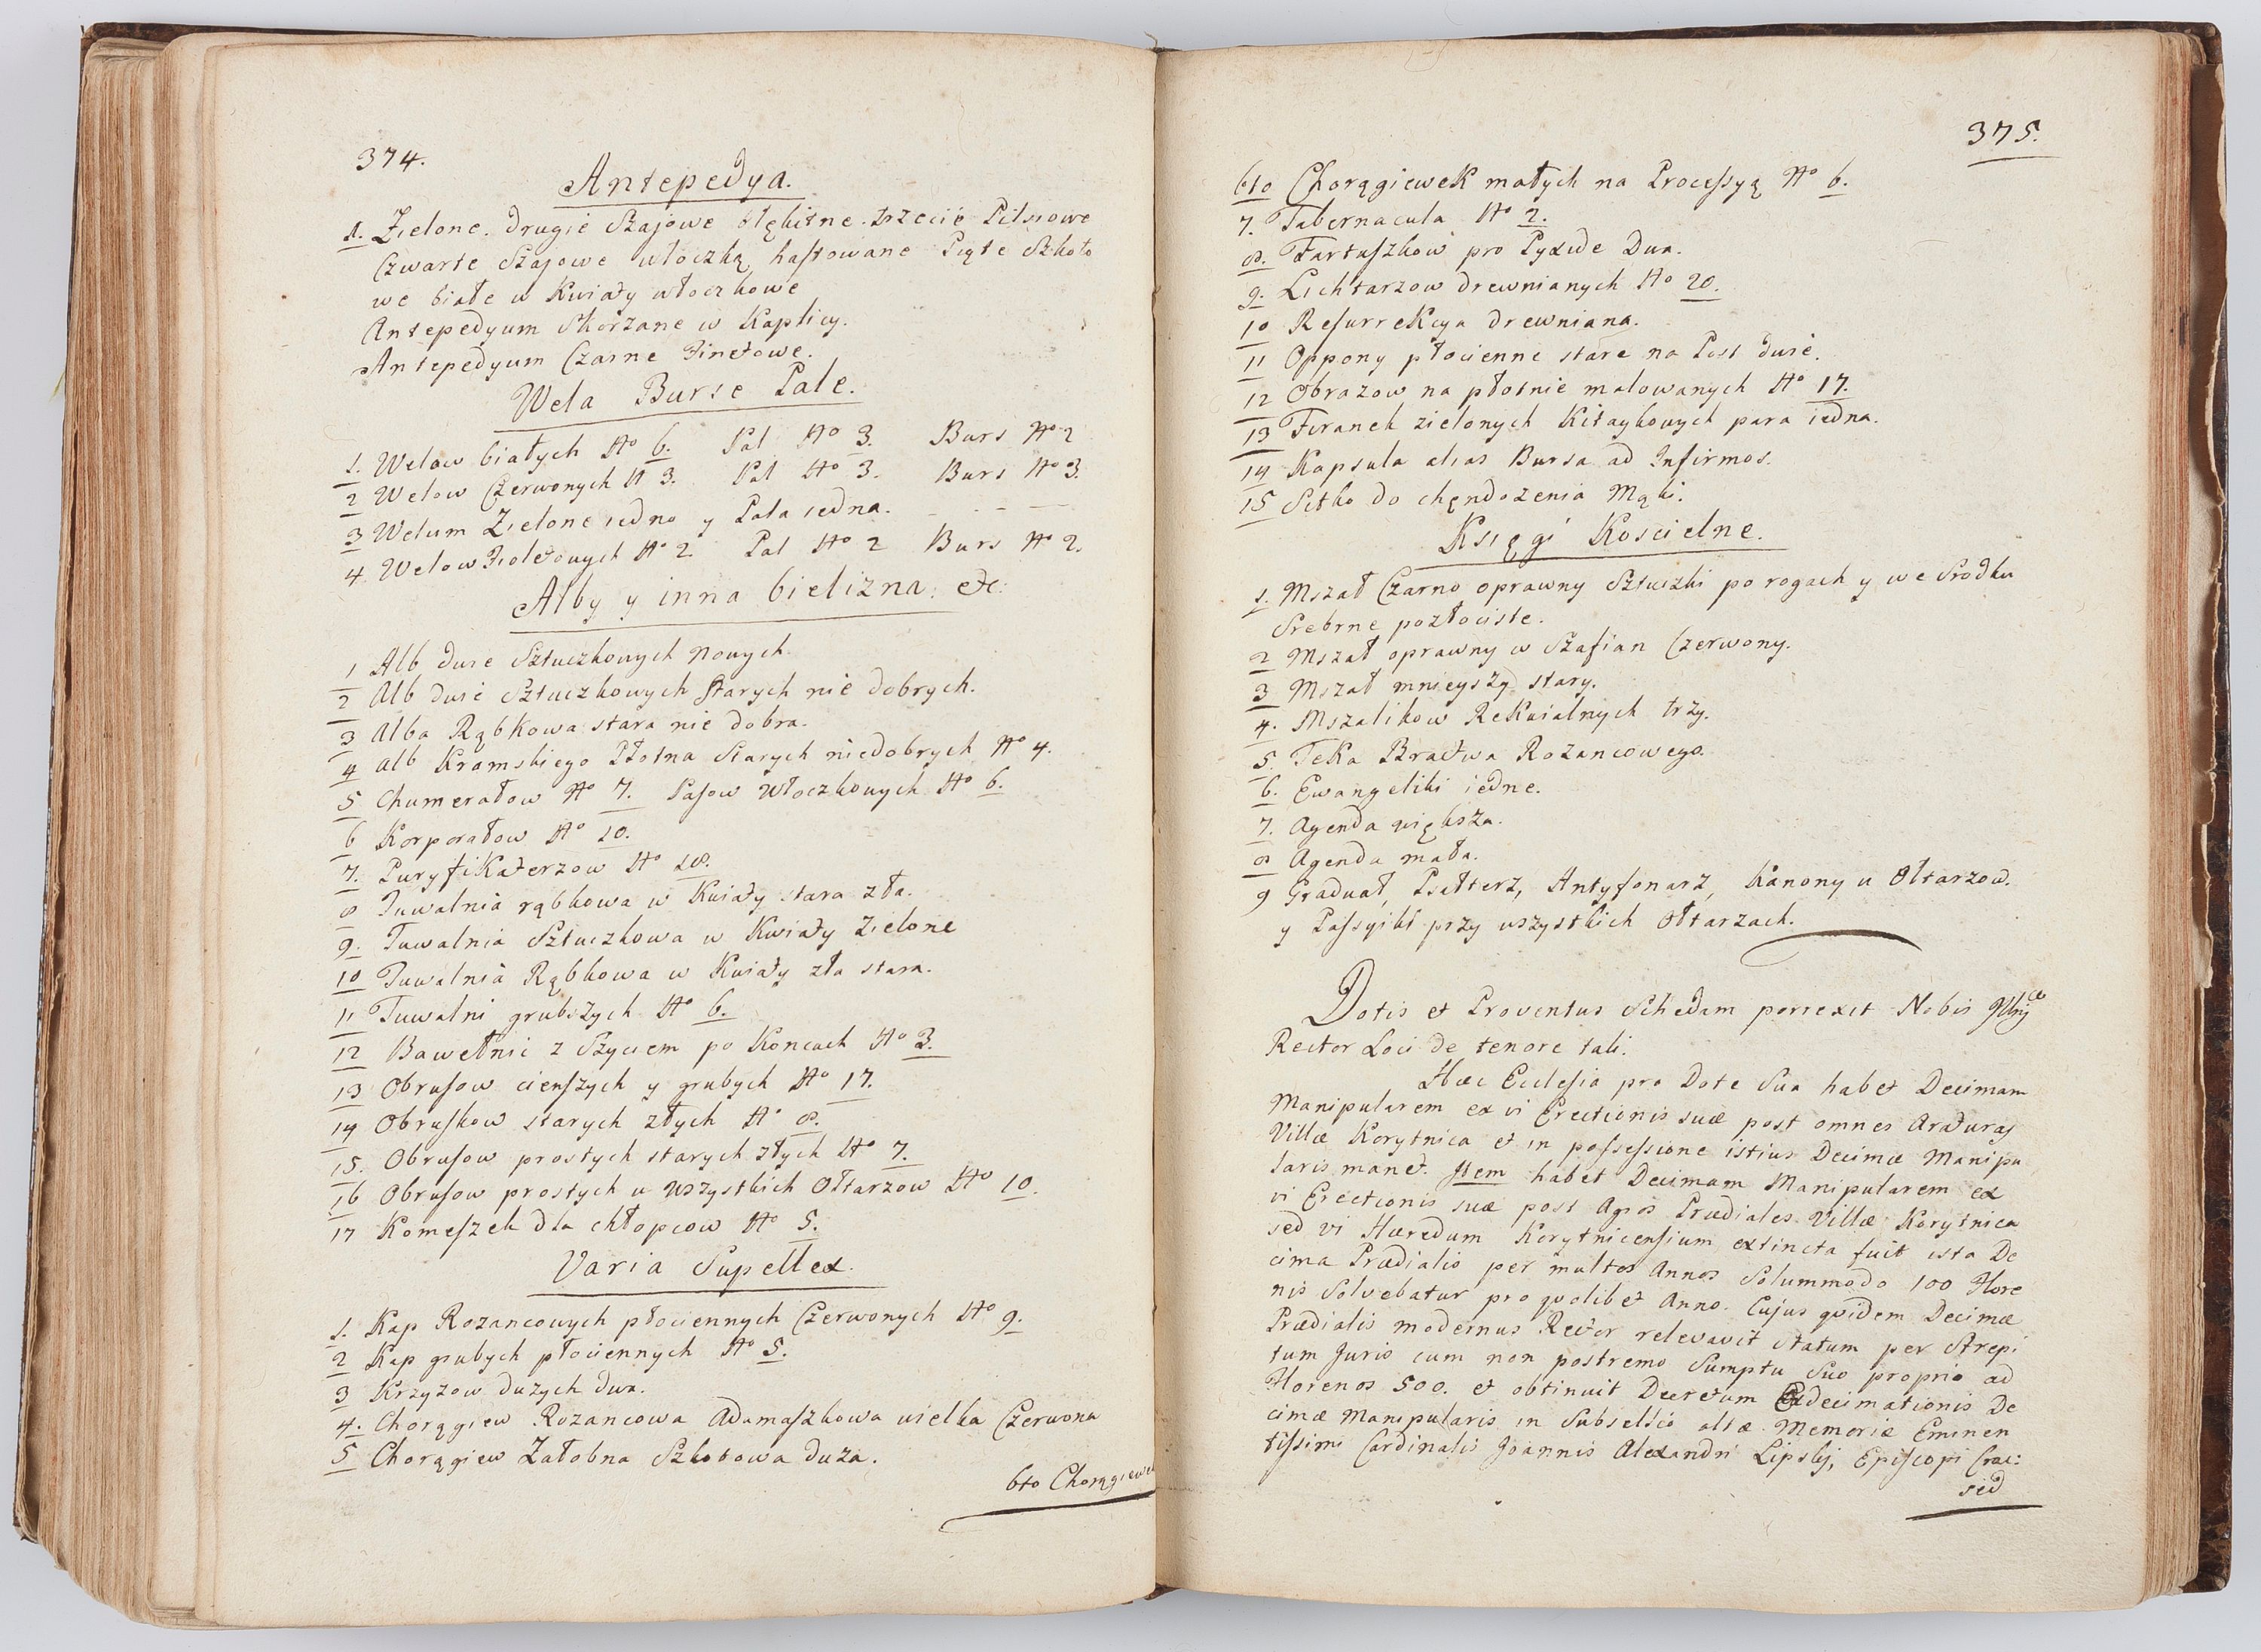 374.
Antepedya.
1. Zielone. drugie Szajowe błękitne. trzecie Pilsiowe
Czwarte Szajowe włoczką haftowane Piąte Szkoto
we białe w Kwiaty włoczkowe
Antepedyum Skorzane w Kaplicy.
Antepedyum Czarne
Wela Burse Pale.
1. Welow białych No 6. Pal No 3. Burs No 2
2 Welow Czerwonych N 3. Pal No 3. Burs No 3.
3 Welum Zielone iedno y Pala iedna.
4. Welow Fioletowych No 2 Pal No 2 Burs No 2.
Alby y inna bielizna. etc.
1 Alb dwie Sztuczkowych Nowych.
2 Alb dwie Sztuczkowych Starych nie dobrych.
3 Alba Rąbkowa stara nie dobra.
4 Alb Kramskiego Płotna Starych niedobrych No 4.
5 Chumerałow No 7. Pasow Włoczkowych No 6.
6 Korporałow No 10.
7. Puryfikaterzow No 18.
8 Tuwalnia rąbkowa w Kwiaty stara zła.
9. Tuwalnia Sztuczkowa w Kwiaty Zielone
10 Tuwalnia Rąbkowa w Kwiaty zła stara.
11 Tuwalni grubszych No 6.
12 Bawełnic z Szyciem po Koncach No 3.
13 Obrusow cienszych y grubych No 17.
14 Obruskow starych złych No 8.
15. Obrusow prostych starych złych No 7.
16 Obrusow prostych u wszystkich Ołtarzow No 10.
17 Komeszek dla chłopcow No 5.
Varia Supellex.
1. Kap Rozancowych płociennych Czerwonych No 9.
2 Kap grubych płociennych No 5.
3 Krzyzow duzych dwa.
4. Chorągiew Rozancowa Adamaszkowa wielka Czerwona
5 Chorągiew Załobna Szkotowa duza.
6to Chorągiewek
375.
6to Chorągiewek małych na Processyą No 6.
7. Tabernacula No 2.
8. Fartuszkow pro Pyxide Dwa.
9. Lichtarzow drewnianych No 20.
10 Resurrekcya drewniana.
11 Oppony płocienne stare na Post dwie.
12 Obrazow na płotnie malowanych No 17.
13 Firanek zielonych Kitaykowych para iedna.
14 Kapsula alias Bursa ad Infirmos.
15 Sitko do chędozenia Mąki.
Księgi Koscielne.
1. Mszał Czarno oprawny Sztuczki po rogach y we Srodku
Srebrne pozłociste.
2 Mszał oprawny w Szafian Czerwony.
3 Mszał mnieyszy stary.
4. Mszalikow Rekwialnych trzy.
5. Teka Bractwa Rozancowego.
6. Ewangeliki iedne.
7. Agenda większa.
8 Agenda mała.
9 Graduał, Psałterz, Antyfonarz, Kanony u Ołtarzow.
y Passyiki przy wszystkich Ołtarzach.
Dotis et Proventus Schedam porrexit Nobis
Rector Loci de tenore tali.
Hæc Ecclesia pro Dote Sua habet Decimam
Manipularem ex vi Erectionis suæ post omnes Araturas
Villæ Korytnica et in possessione istius Decimæ Manipu
laris manet. Item habet Decimam Manipularem ex
vi Erectionis suæ post Agros Prædiales Villæ Korytnica
sed vi Hæredum Korytnicensium extincta fuit ista De
cima Prædialis per multos Annos Solummodo 100 Flore
nis Solvebatur pro qvolibet Anno. Cujus qvidem Decimæ
Prædialis modernus Rector relevavit statum per Strepi
tum Juris cum non postremo Sumptu Suo proprio ad
Florenos 500. et obtinuit Decretum Exdecimationis De
cimæ Manipularis in Subsellio altæ Memoriæ Eminen
tissimi Cardinalis Joannis Alexandri Lipskij, Episcopi Crac:
sed